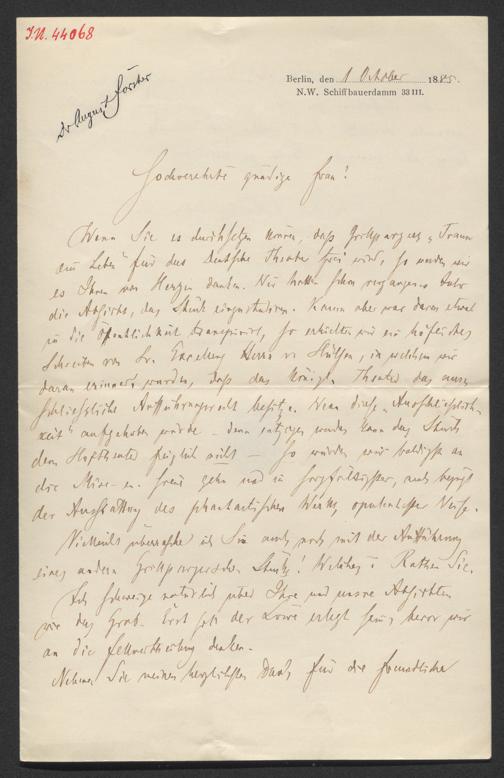 I.N. 44068
Dr August Förster
Berlin, den 1 October 1885.
N.W. Schiffbauerdamm 33 III.
Hochverehrte gnädige Frau!
Wenn Sie es durchsetzen können, daß Grillparzers „Traum
ein Leben" für das Deutsche Theater frei wird, so werden wir
es Ihnen von Herzen danken. Wir hatten schon vergangenes Jahr
die Absicht, das Stück einzustudiren. Kaum aber war davon etwas
in die Öffentlichkeit transpirirt, so erhielten wir ein höfliches
Schreiben von Sr. Excellenz Herrn v. Hülsen, in welchem wir
daran erinnert wurden, daß das Königl. Theater das aus
schließliche Aufführungsrecht besitze. Wenn diese „Ausschließlich-
keit" aufgehoben würde – denn entziehen werden kann das Stück
dem Hoftheater füglich nicht – so würden wir baldigst an
die Mise-en-scène gehn und in sorgfältigster, auch bezügl.
der Ausstattung des phantastischen Werks, opulentester Weise.
Vielleicht überrasche ich Sie auch noch mit der Aufführung
eines andern Grillparzerschen Stücks! Welches? Rathen Sie.
Ich schweige natürlich über Ihre und unsere Absichten
wie das Grab. Erst soll der Löwe erlegt sein, bevor wir
an die Fellvertheilung denken.
Nehmen Sie meinen herzlichsten Dank für die freundlichen